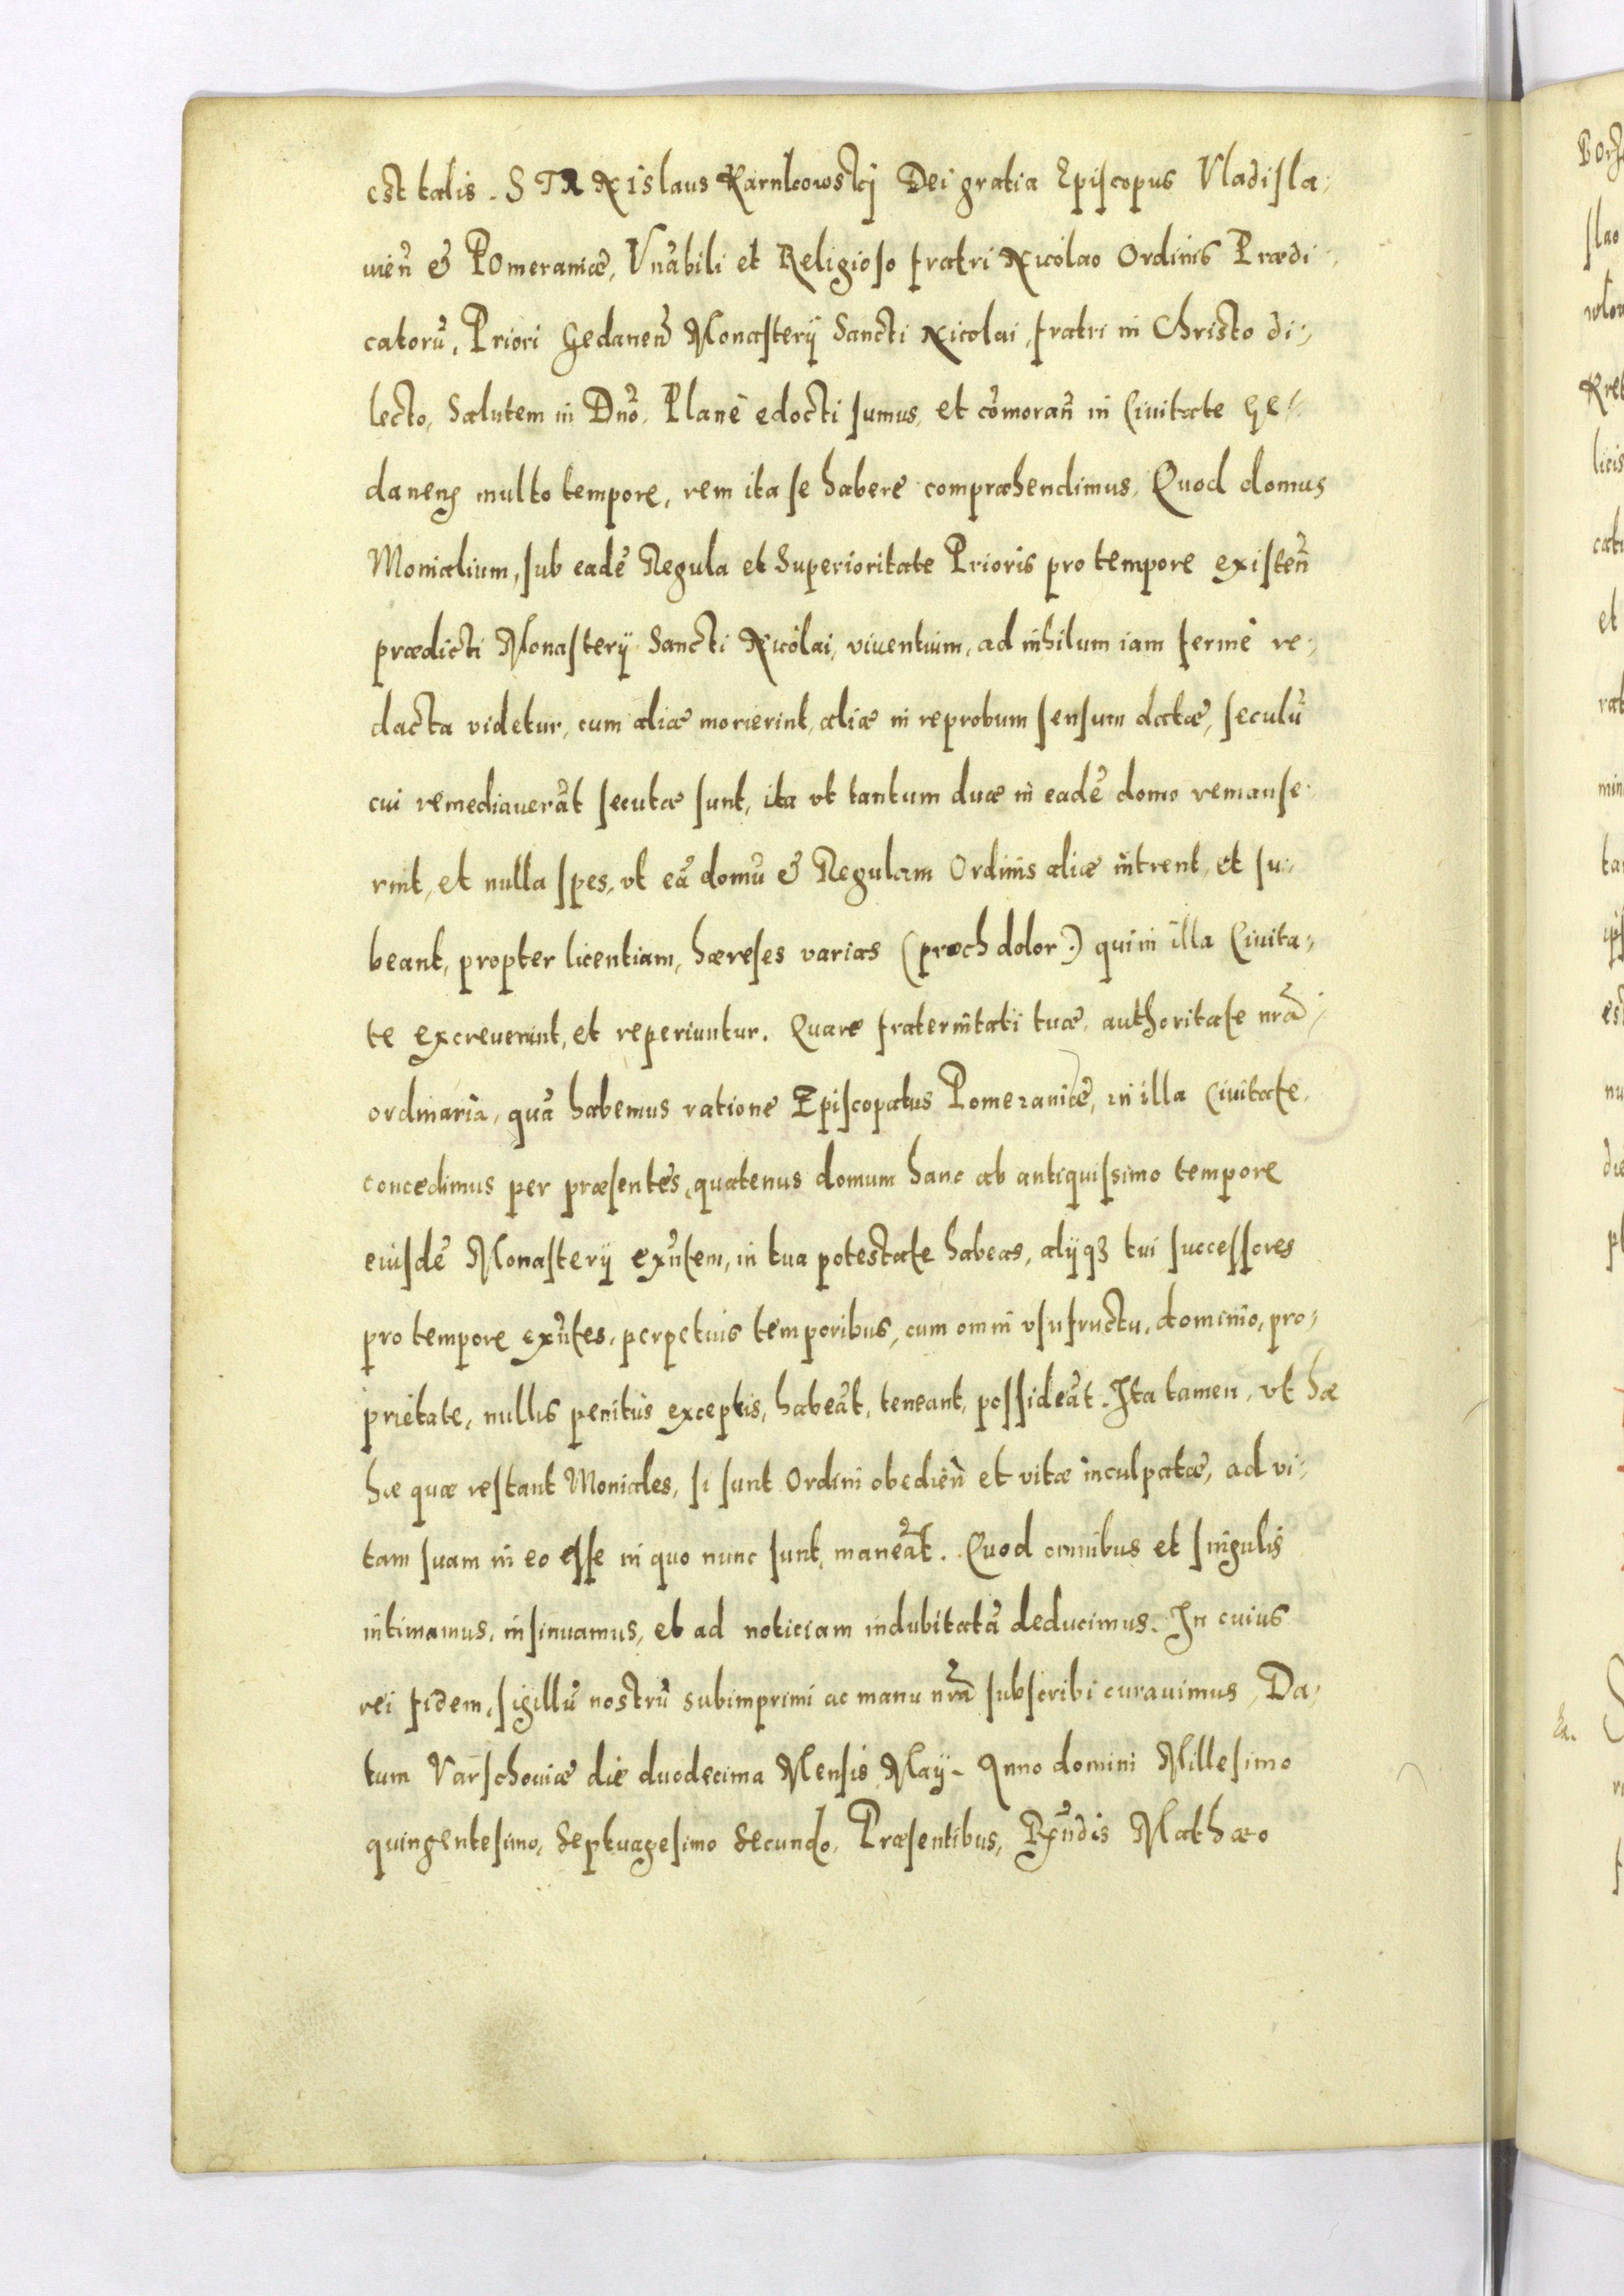 est talis. STANislaus Karnkowskj Dei gratia Episcopus Vladisla-
uieñ & Pomeraniæ, Vnãbili et Religioso fratri Nicolao Ordinis Prædi-
catorũ, Priori Gedaneñ Monasterij Sancti Nicolai, fratri in Christo di-
lecto, Salutem in Dño. Planè edocti sumus, et cõmorañ in Ciuitate Ge-
daneñ multo tempore, rem ita se habere compræhendimus, Quod domus
Monialium, sub eadẽ Regula et Superioritate Prioris pro tempore existeñ
prædicti Monasterij Sancti Nicolai, viuentium, ad nihilum iam fermè re-
dacta videtur, cum aliæ morierint, aliæ in reprobum sensum datæ, seculũ
cui remediauerãt secutæ sunt, ita vt tantum duæ in eadẽ domo remanse-
rint, et nulla spes, vt eã domũ & Regulam Ordinis aliæ intrent, et su-
beant, propter licentiam, hæreses varias (proch dolor!) qui in illa Ciuita-
te excreuerint, et reperiuntur. Quare fraternitati tuæ, authoritate nrã
ordinaria, quã habemus ratione Episcopatus Pomeraniæ, in illa Ciuitate,
concedimus per præsentes, quatenus domum hanc ab antiquissimo tempore
eiusdẽ Monasterij exñtem, in tua potestate habeas, alijqȝ tui successores
pro tempore exñtes, perpetuis temporibus, cum omni vsufructu, dominio, pro-
prietate, nullis penitùs exceptis, habeãt, teneant, possideãt. Ita tamen, vt hæ
hæ quæ restant Moniales, si sunt Ordini obedieñ et vitæ inculpatæ, ad vi-
tam suam in eo esse in quo nunc sunt, maneãt. Quod omnibus et singulis
intimamus, insinuamus, et ad noticiam indubitatã deducimus. In cuius
rei fidem, sigillũ nostrũ subimprimi ac manu nrã subscribi curauimus, Da-
tum Varschouiæ die duodecima Mensis Maij. Anno domini Millesimo
quingentesimo, Septuagesimo Secundo, Præsentibus, Rñdis Mathæo